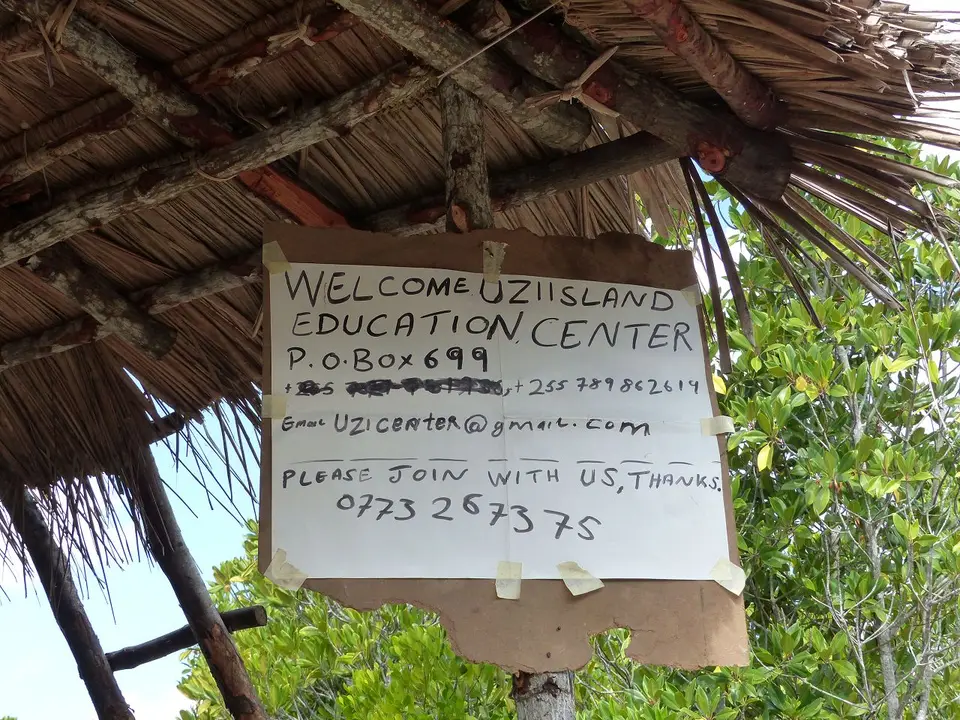 WELCOME UZI ISLAND
EDUCATION CENTER
P.O.BOX 699
+255 , +255 789862614
Email UZICENTER@gmail.com
PLEASE JOIN WITH US, THANKS.
0773 267375